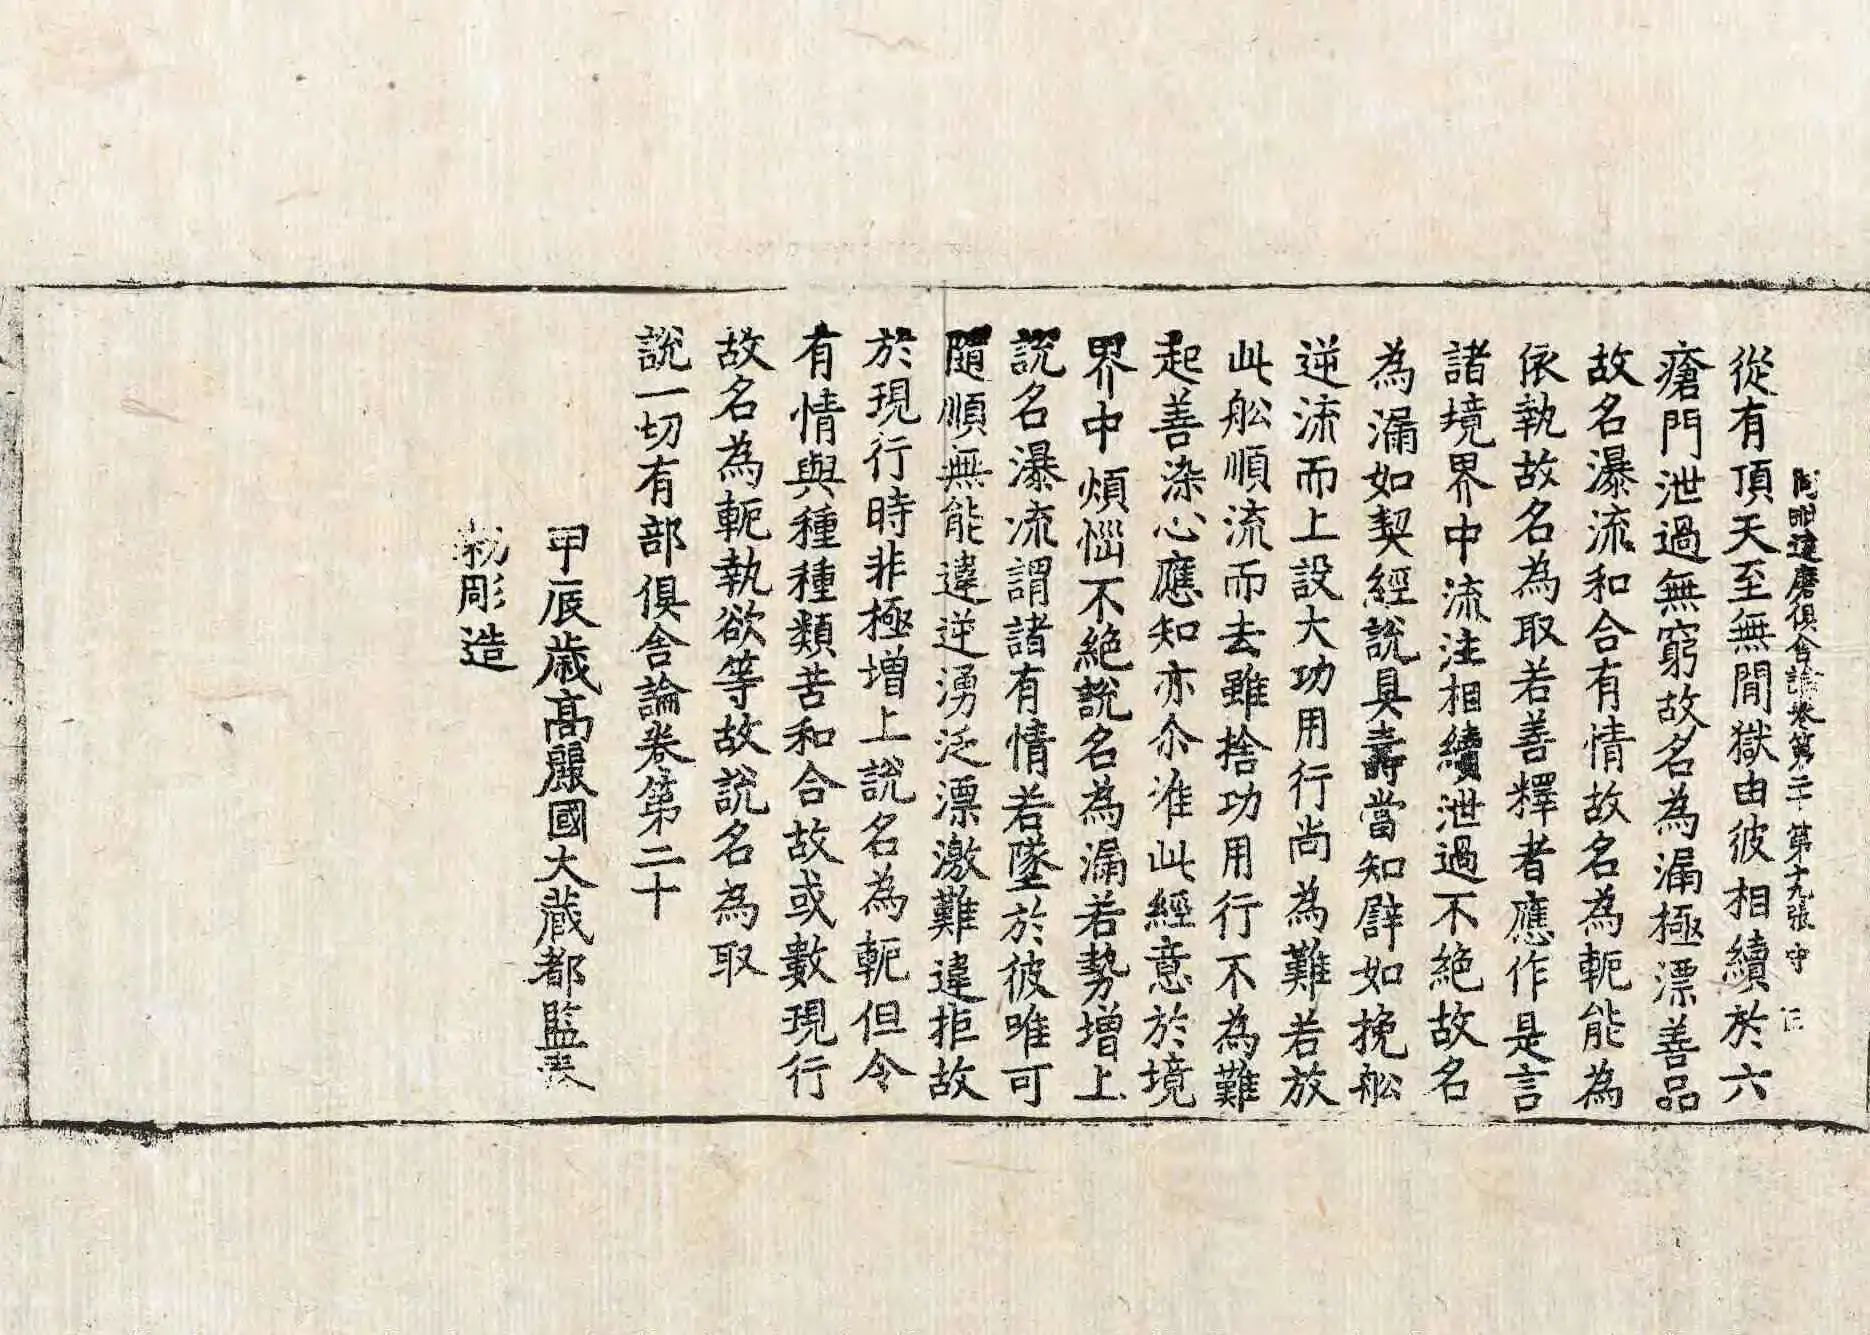 阿毗達磨俱舍論卷第二十 第十九張 守
從有頂天至無閒獄由彼相續於六
瘡門泄過無窮故名為漏極漂善品
故名瀑流和合有情故名為軛能為
依執故名為取若善釋者應作是言
諸境界中流注相續泄過不絕故名
為漏如契經說具壽當知譬如挽舩
逆流而上設大功用行尚為難若放
此舩順流而去雖捨功用行不為難
起善染心應知亦尒准此經意於境
界中煩惱不絕說名為漏若勢增上
說名瀑流謂諸有情若墜於彼唯可
隨順無能違逆湧泛漂激難違拒故
於現行時非極增上說名為軛但令
有情與種種類苦和合故或數現行
故名為軛執欲等故說名為取
說一切有部俱舍論卷第二十
甲辰歲高麗國大藏都監奉
勑彫造